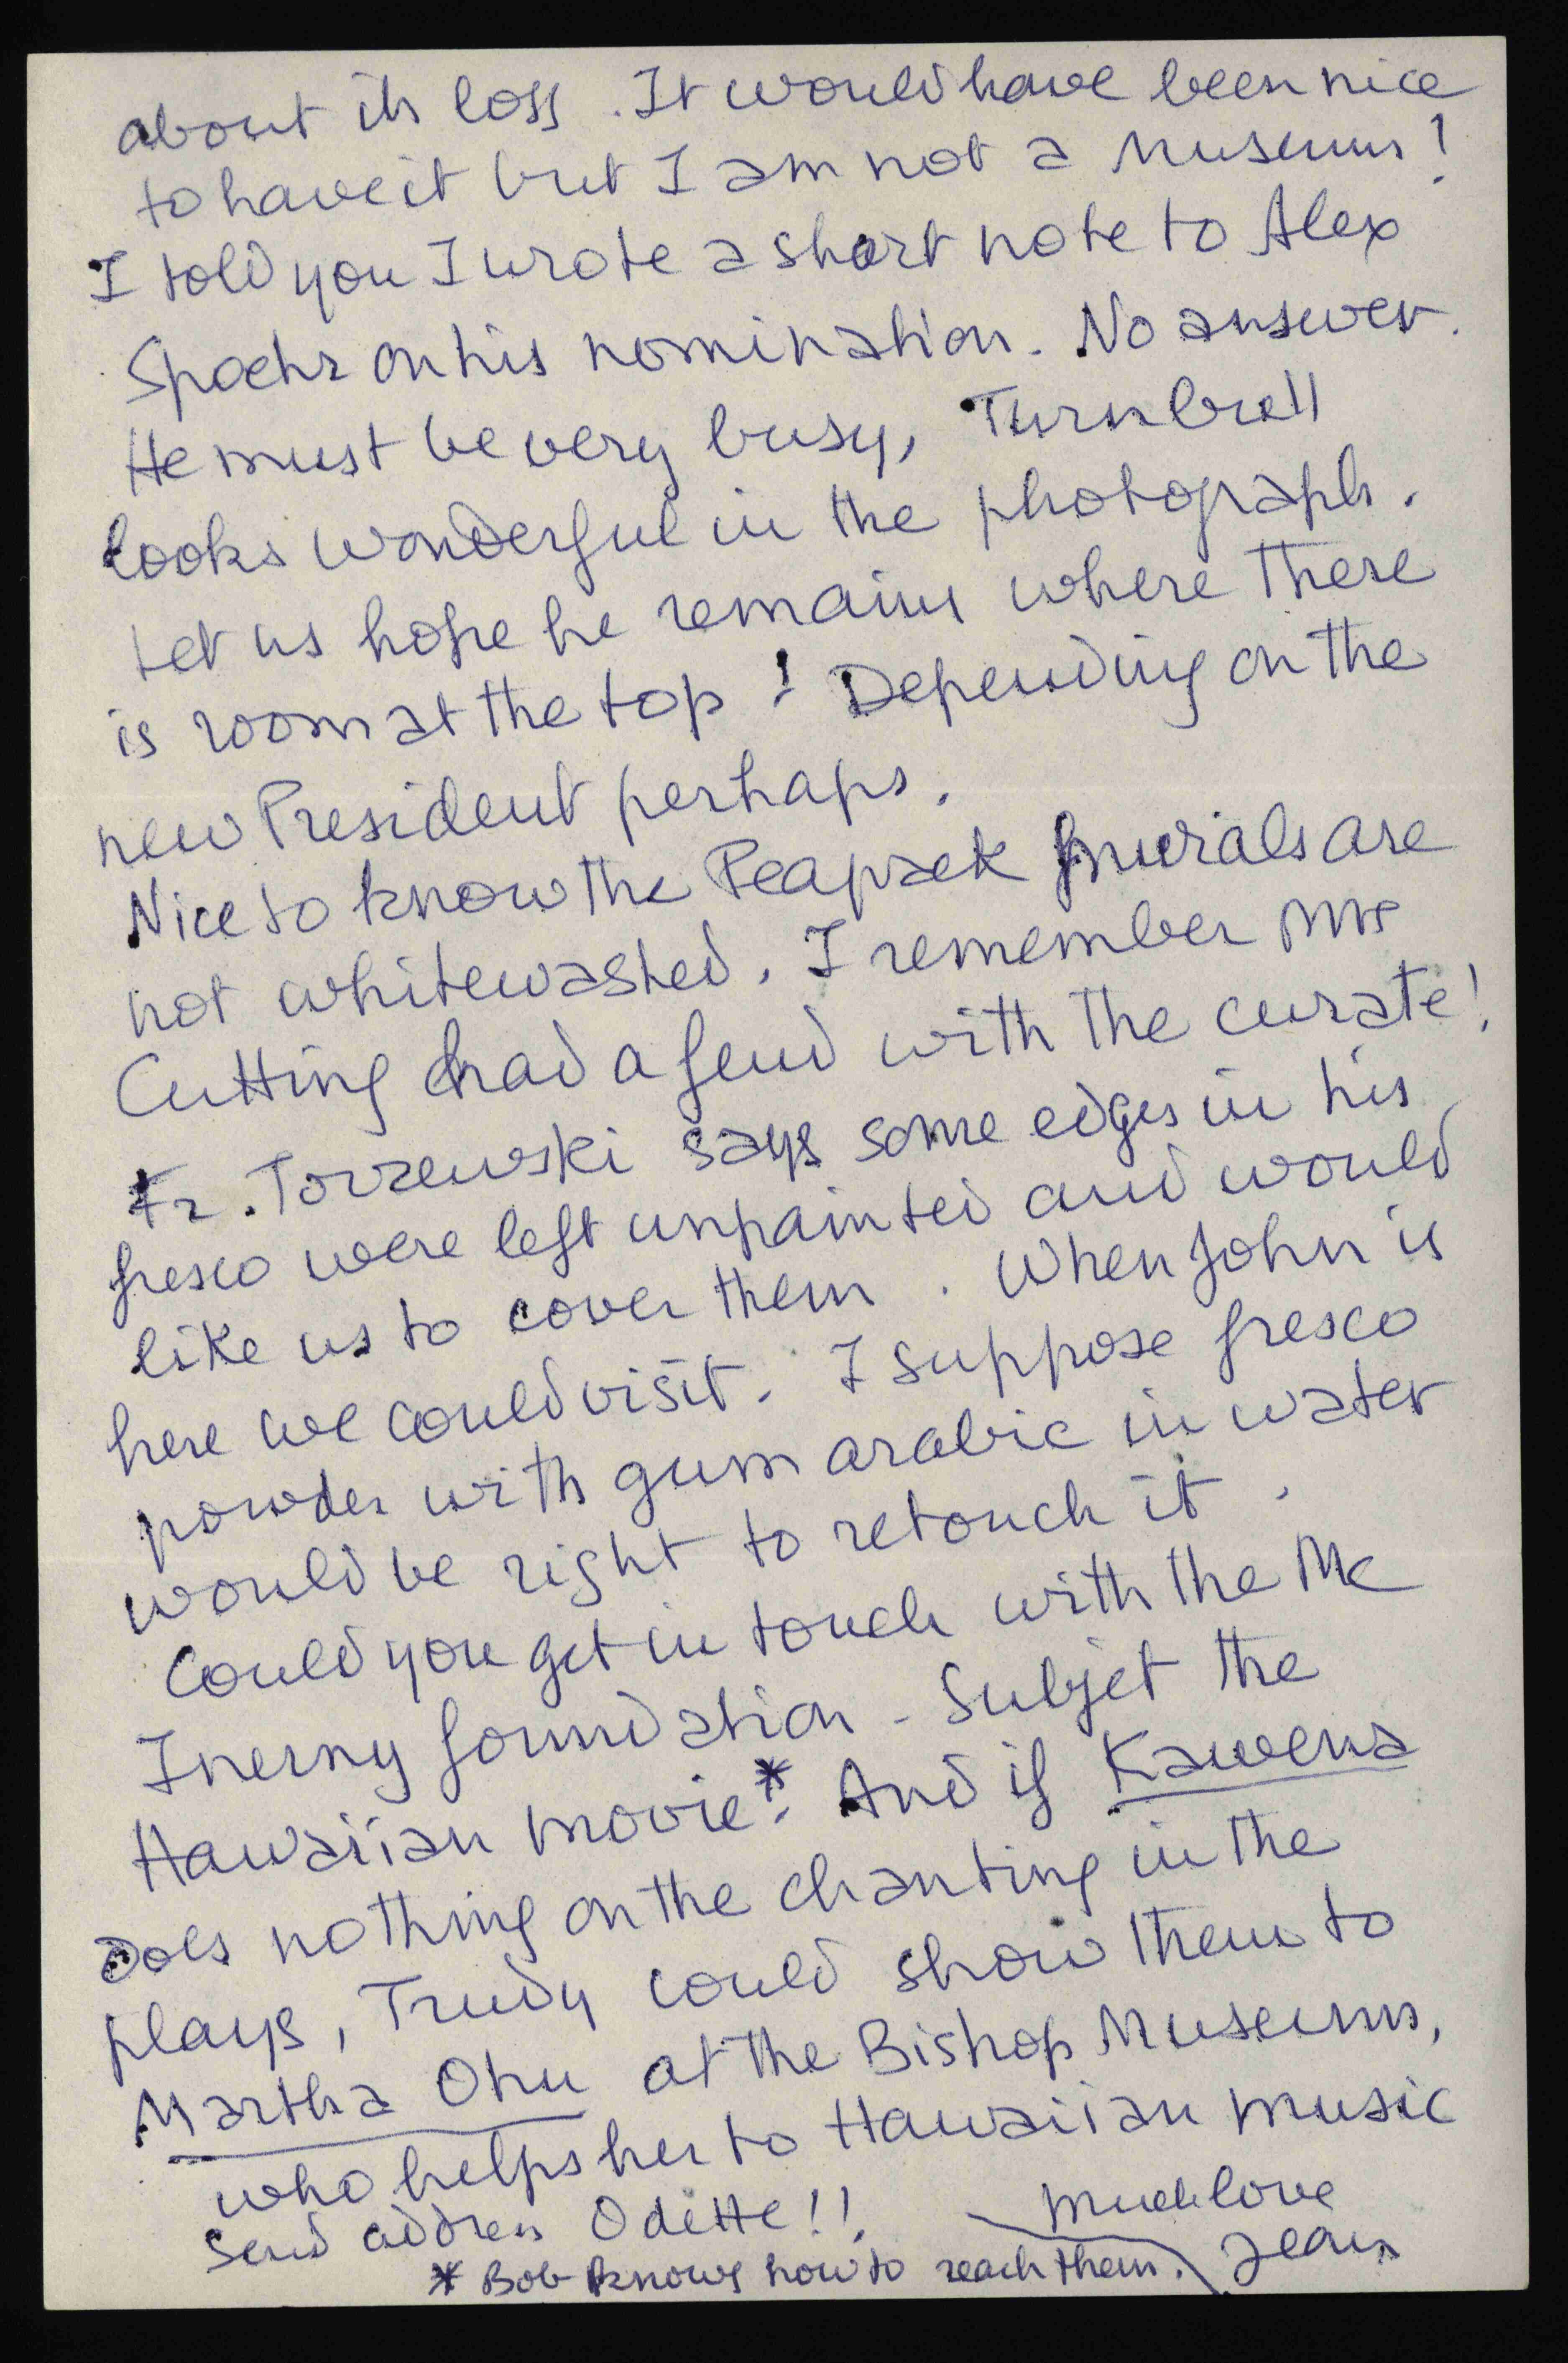 about its loss. It would have been nice
to have it but I am not a Museum!
I told you I wrote a short note to Alex
Spoehr on his nomination. No answer.
He must be very busy, Turnbull
looks wonderful in the photograph.
Let us hope he remains where there
is room at the top! Depending on the
new President perhaps.
Nice to know the Peapack murals are
not whitewashed. I remember Mrs
Cutting had a feud with the curate!
Fr. Torzewski says some edges in his
fresco were left unpainted and would
like us to cover them. When John is
here we could visit. I suppose fresco
powder with gum arabic in water
would be right to retouch it.
Could you get in touch with the Mc
Inerny foundation - Subjet the
Hawaiian movie*. And if Kawena
Does nothing on the chanting in the
plays, Trudy could show them to
Martha Ohu at the Bishop Museum,
who helps her to Hawaiian music
Send address Odette!!
Much love
Jean
* Bob knows how to reach them.